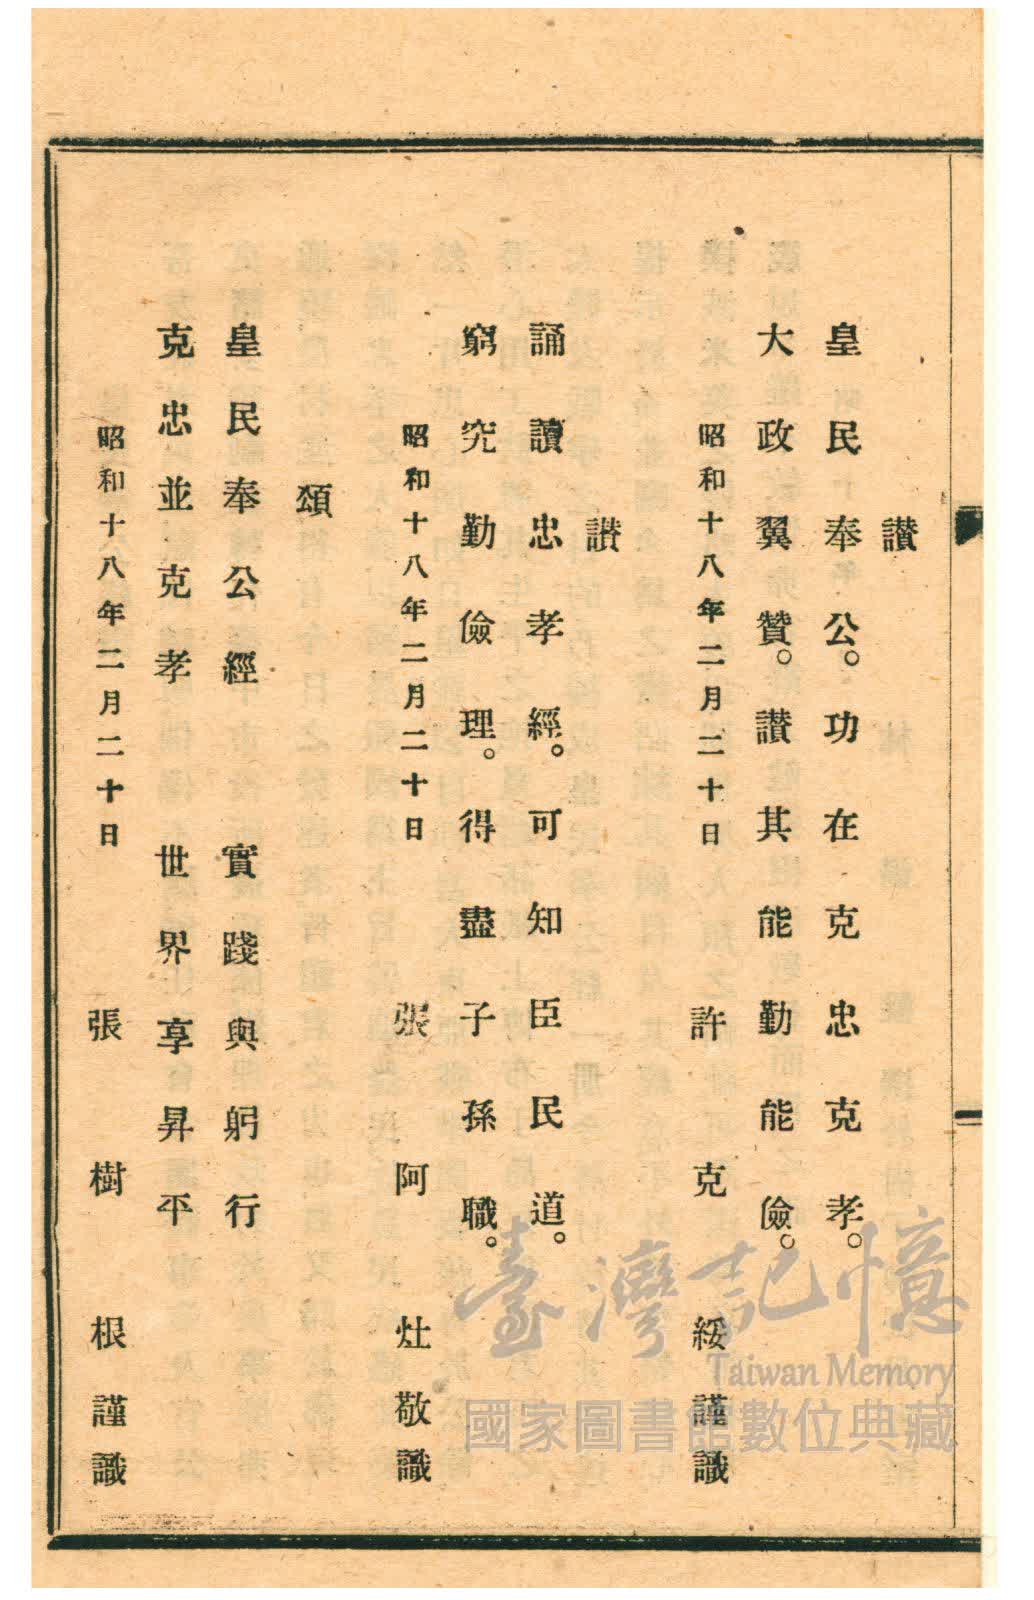 讃
皇民奉公。功在克忠克孝。
大政翼贊。讃其能勤能儉。
昭和十八年二月二十日　許克綏謹識
讃
誦讀忠孝經。可知臣民道。
窮究勤儉理。得盡子孫職。
昭和十八年二月二十日　張阿灶敬識
頌
皇民奉公經　實踐與躬行
克忠並克孝　世界享昇平
昭和十八年二月二十日　張樹根謹識
二
臺灣記憶
Taiwan Memory
國家圖書館數位典藏